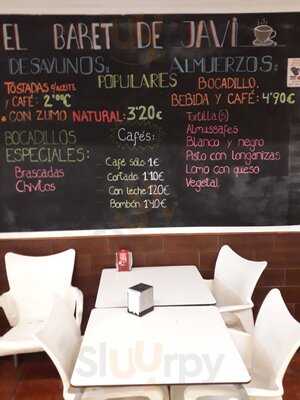 EL BARET DE JAVI
DESAYUNOS:
ALMUERZOS:
POPULARES
TOSTADAS
Y CAFÉ: 2'00€
• CON ZUMO NATURAL: 3'20€
BOCADILLO,
BEBIDA Y CAFÉ: 4'90€
BOCADILLOS
ESPECIALES:
Brascadas
Chivitos
Cafés:
Café sólo 1€
Cortado 1'10€
Con leche 1'20€
Bombón 1'40€
Tortilla
Almussafes
Blanco y negro
Pisto con longanizas
Lomo con queso
Vegetal
Sluurpy